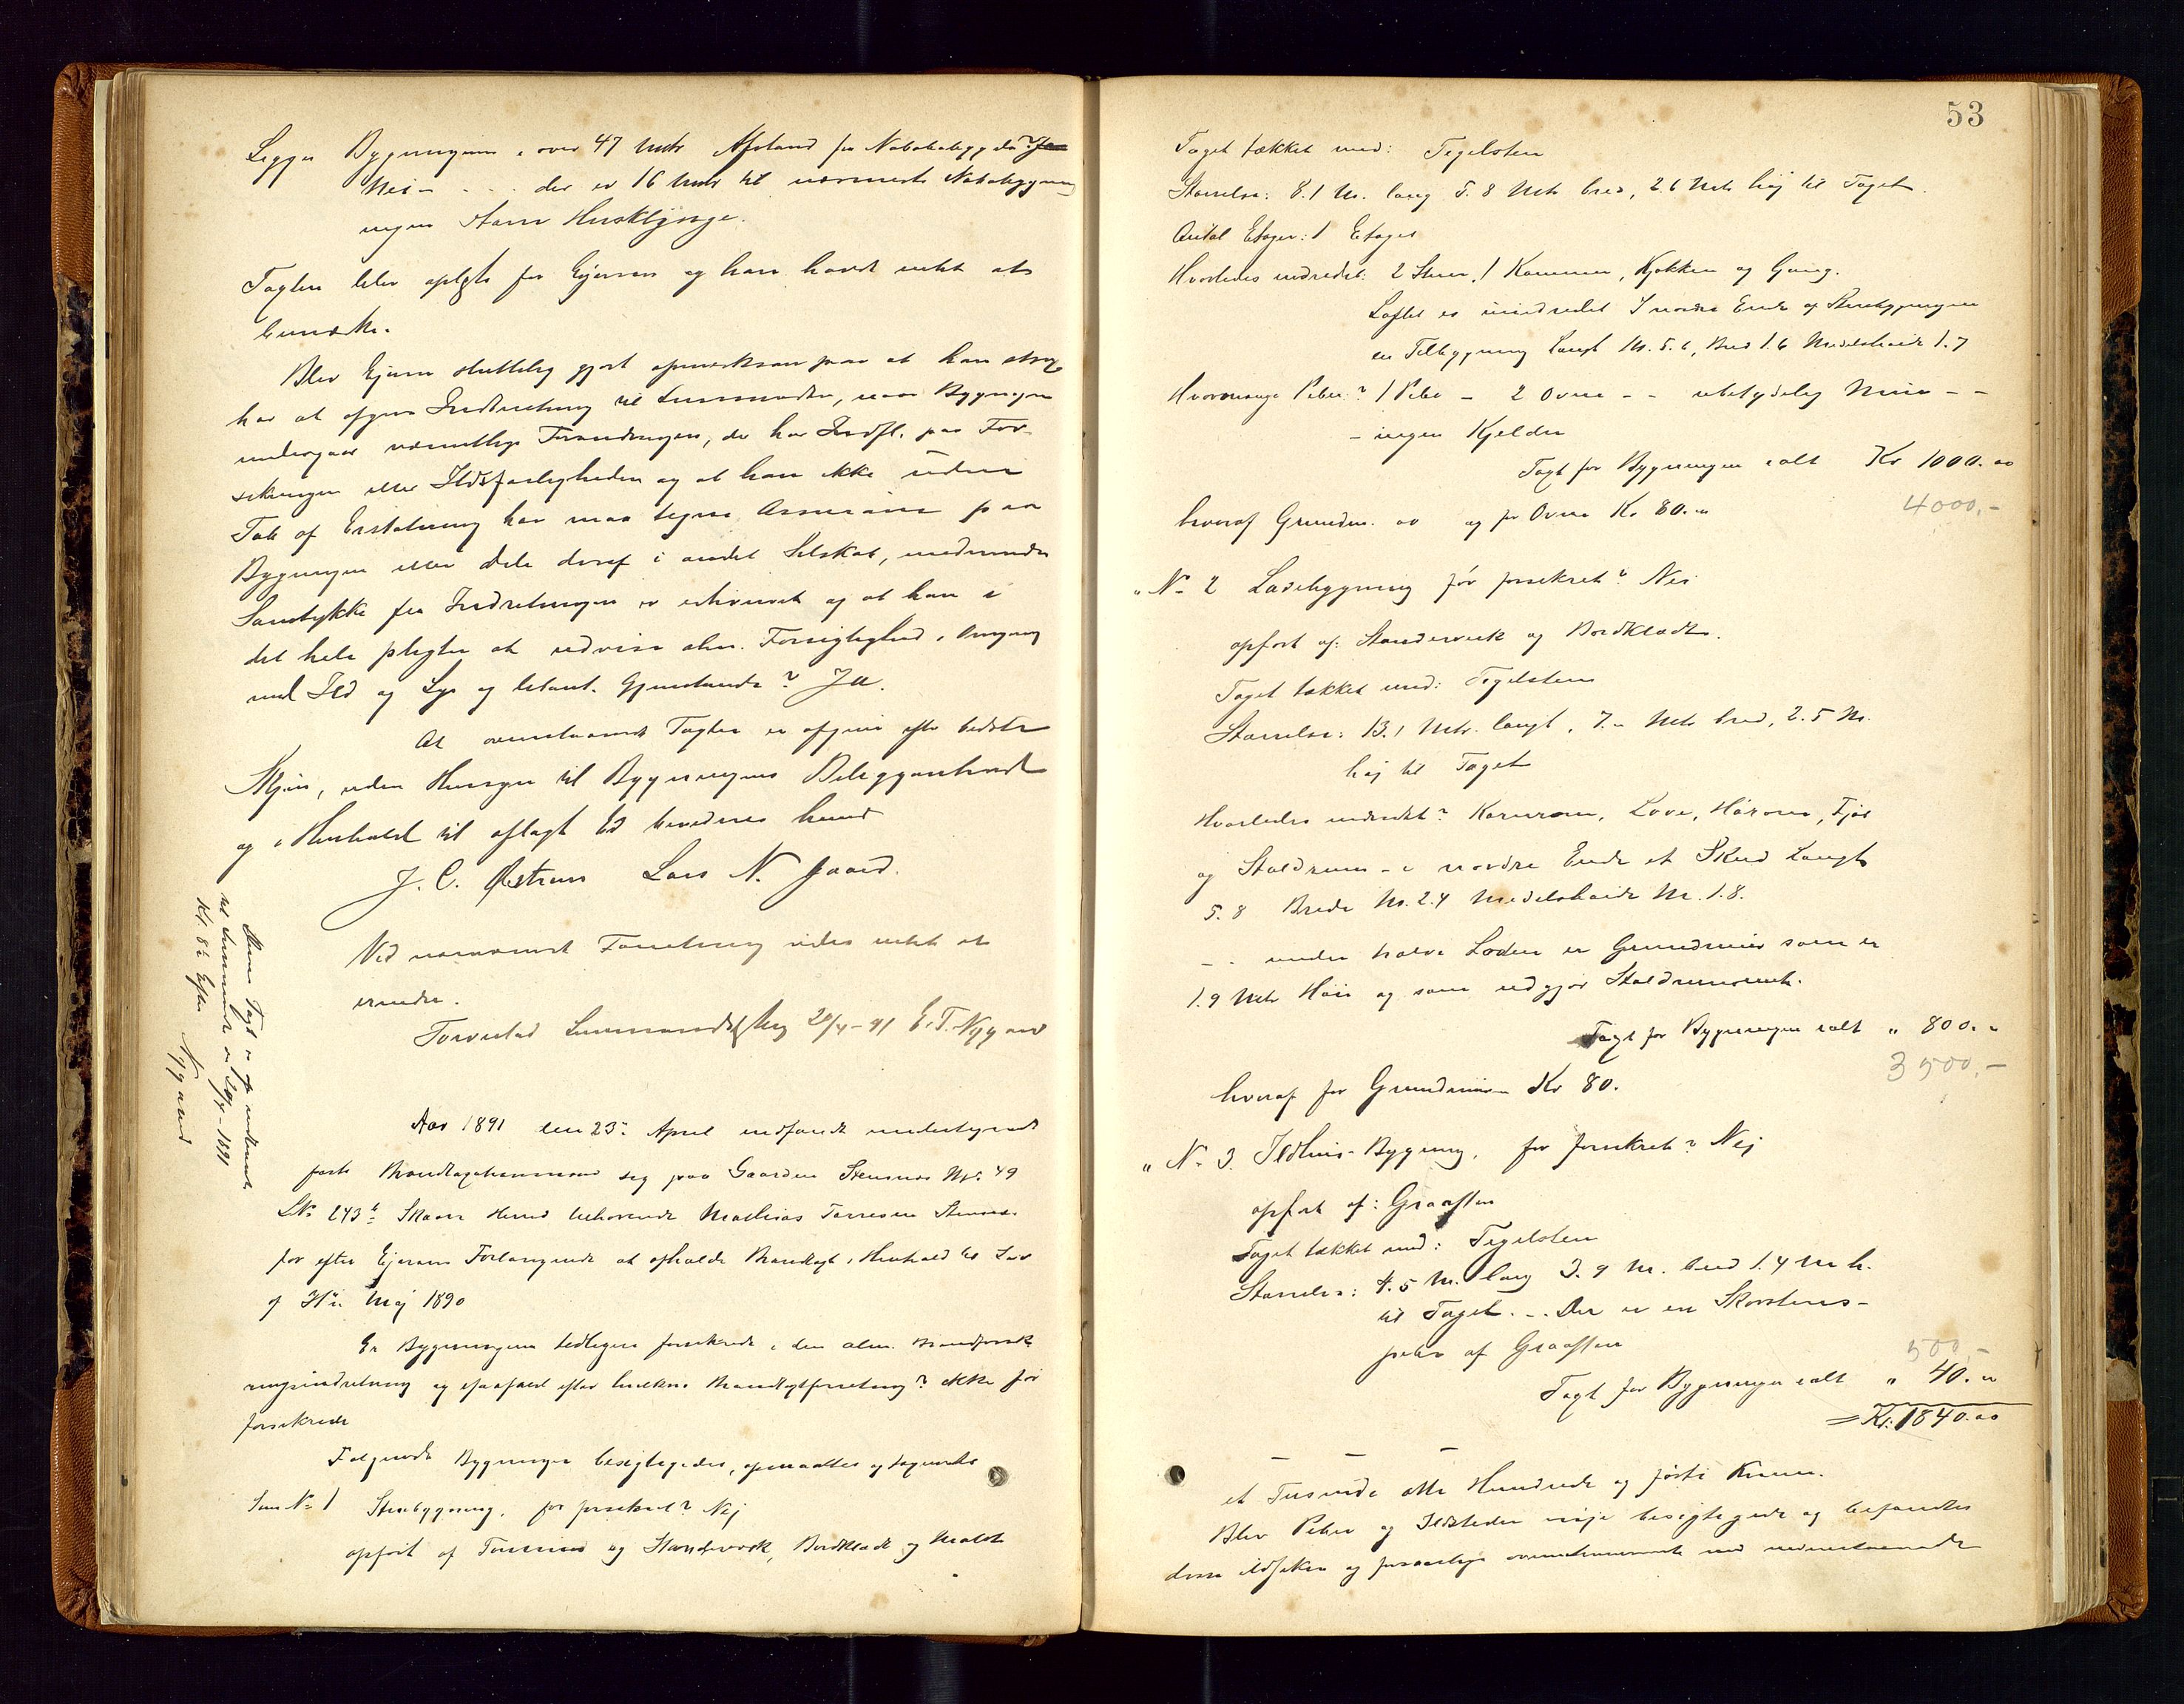 Ligger Bygningerne i over 47 Mtr Afstand fra Nabobebyggelse? Ja
Nei - - - der er 16 Mtr til nærmeste Nabobygning
Taxten blev oplæst for Ejeren og han havde intet at
bemærke.
Blev Ejeren sluttelig gjort opmærksom paa at han strax
har at afgive Indberetning til Lensmanden, naar Bygningen
undergaar væsentlige Forandringer, der har Indfl. paa For-
sikringen eller Ildsfarligheden og at han ikke uden
Tab af Erstatning har maa tegne Assurance paa
Bygningen eller Dele deraf i andet Selskab, medmindre
Samtykke fra Indretningen er erhvervet og at han i
det hele pligter at udvise alm. Forsigtighed i Omgang
med Ild og Lys og letant. Gjenstande? Ja.
At ovenstaaende Taxter er afgivne efter bedste
Skjøn, uden Hensyn til Bygningens Beliggenhed
og i Henhold til aflagt Ed bevidnes herved
J. C. Østrem Lars N. Gaard.
Ved nærværende Forretning vides intet at
erindre.
Torvestad Lensmandsbestg 20/4-91 E. T. Nygaard
Denne Taxt er af indkomst
til Lensmand 20/4-1891
Kr. 82 Efter
Nygaard
Aar 1891 den 23. April indfandt undertegnede
faste Brandtaxtmænd sig paa Gaarden Stensnes Mt. 49
LNo 243b Skaare Herred tilhørende Mathias Torresen Stensnes
for efter Ejerens Forlangende at afholde Brandtaxt i Henhold til Lov
af Maj 1890
Er Bygningerne tidligere forsikrede i den alm. Brandforsik
ringsindretning og isaafald efter hvilken Brandtaxtforretning? ikke før
forsikrede
Følgende Bygninger besigtigedes, opmaaltes og taxeredes
Sum No 1 Stuebygning, før forsikret? Nej
opført af Tømmer og Standerværk, Bordklædt og Malet
53
Taget tækket med: Tegelsten
Størrelse: 8.1 M. lang 5.8 Mtr bred, 2.6 Mtr høj til Taget.
Antal Etager: 1 Etager
Hvorledes indredet: 2 Stuer, 1 Kammer, Kjøkken og Gang.
Loftet er uindredet I nordre Ende af Stuebygningen
en Tilbygning Langt M. 5.6, Bred 1.6 Middelshøide 1.7
Hvormange Piber? 1 Pibe - 2 Ovne - - ubetydelig Muur - -
- ingen Kjelder
Taxt for Bygningen ialt Kr 1000.00
4000,-
hvoraf Grundm. 00 og for Ovne Kr 80.00
" No 2 Ladebygning før forsikret? Nei
opført af: Standerverk og Bordklædt.
Taget tækket med: Tegelsten
Størrelse: 13.1 Mtr. langt, 7.- Mtr bred, 2.5 M.
høj til Taget
Hvorledes indredet? Kornrum, Love, Hørum, Fjøs
og Staldrum - i nordre Ende et Skud Langt
5.8 Brede M. 2.4 Middelshøide M. 1.8.
- - under halve Laden er Grundmur som er
1.9 Mtr Høi og som udgjør Staldrummet.
Taxt for Bygningen ialt " 800.-
3500,-
hvoraf for Grundmuren Kr 80.
" No 3. Ildhus-Bygning, før forsikret? Nej
opført af: Graasten
Taget tækket med: Tegelsten
Størrelse: 4.5 M. lang 3.9 M. bred 1.4 M h.
til Taget. - - Der er en Skorstens-
pibe af Graasten
500,-
Taxt for Bygningen ialt " 40.00
= Kr. 1840.00
et Tusinde otte Hundrede og førti Kroner.
Blev Piber og Ildsteder nøje besigtigede og befandtes
disse ildsikre og forsaavidt overensstemmende med nedenstaaende